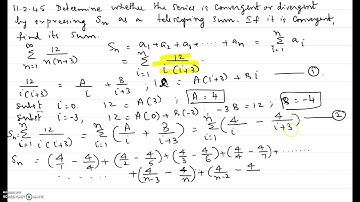 11.2.45 Determine whether the series is convergent or divergent
by expressing Sn as a telescoping sum. If it is convergent,
find its sum.
∞ Σ n=1 12/n(n+3) Sn = a1 + a2 + a3 + ... + an = n Σ i=1 ai
= n Σ i=1 12/i(i+3)
12/i(i+3) = A/i + B/i+3 ; 12 = A(i+3) + Bi — ①
Subst i=0. 12 = A(3) ; A=4
Subst i=-3, 12 = A(0)+B(-3) ; -3B=12 ; B=-4
Sn= n Σ i=1 12/i(i+3) = n Σ i=1 (A/i + B/i+3) = n Σ i=1 (4/i - 4/i+3) — ②
Sn = (4/1 - 4/4) + (4/2 - 4/5) + (4/3 - 4/6) + (4/4 - 4/7) + .......
........ + (4/n-3 - 4/n) + (4/n-2 - 4